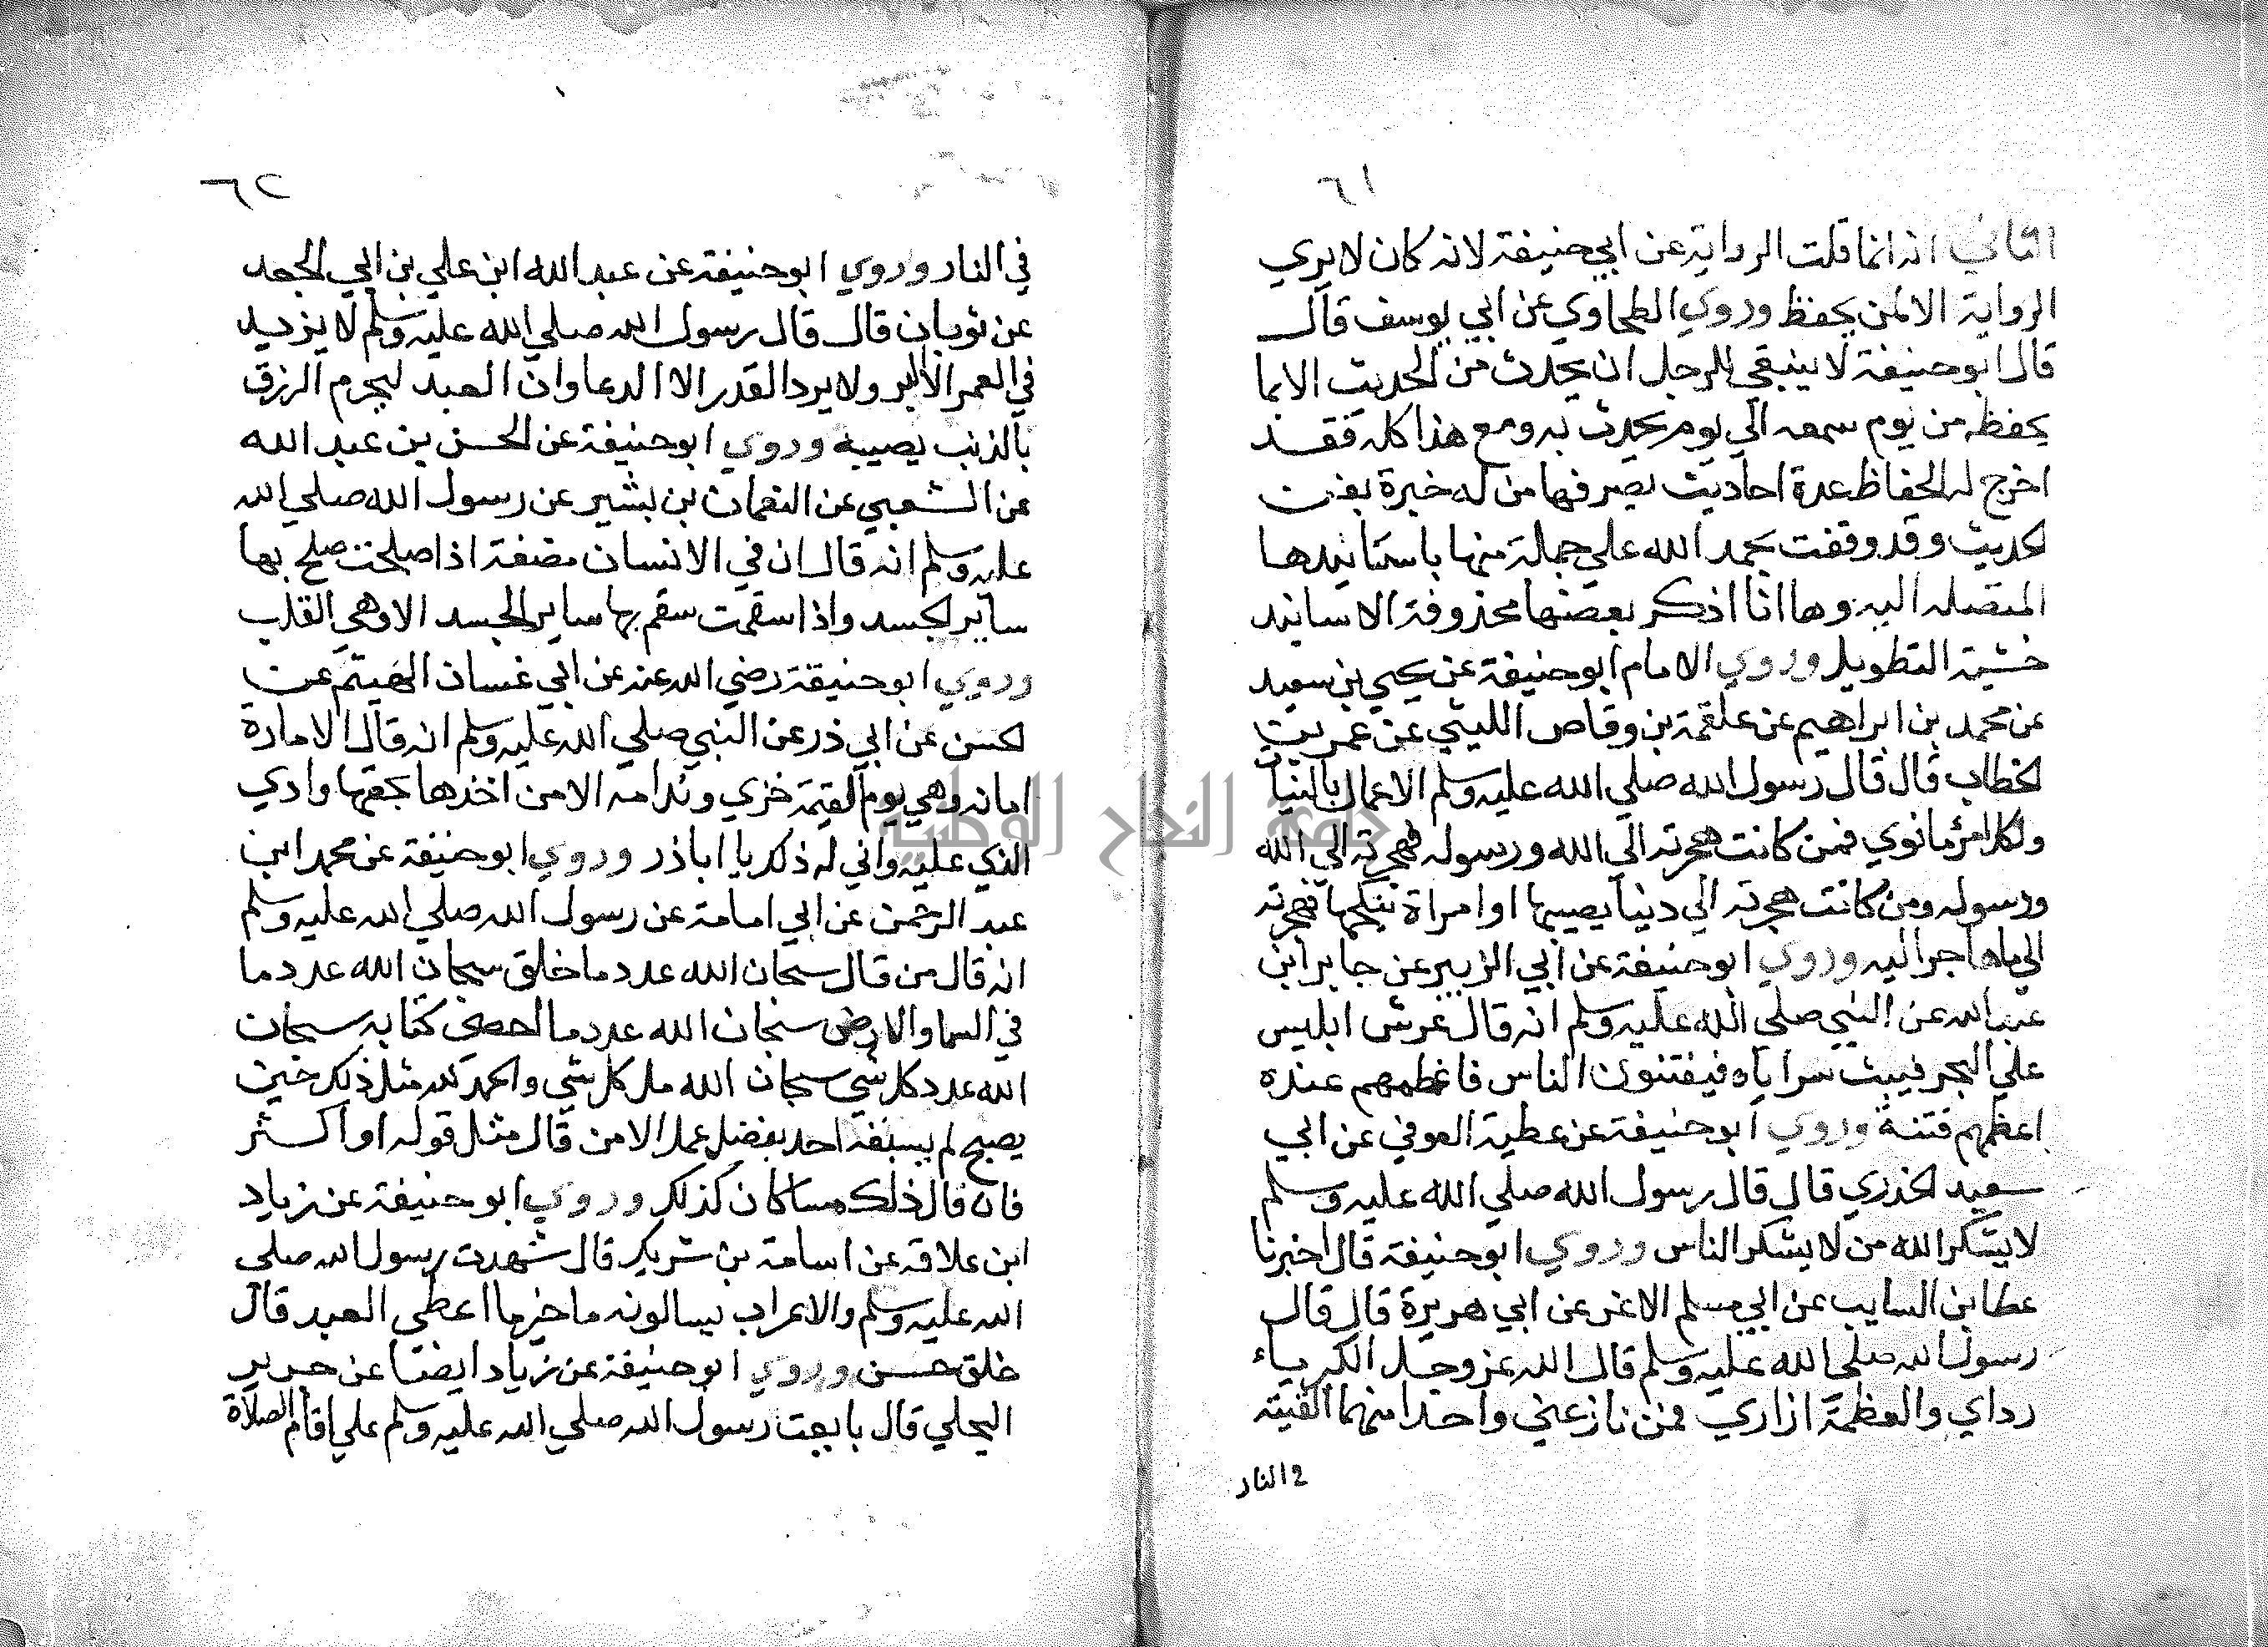 ٦١
الثاني انه انما قلت الرواية عن ابي حنيفة لانه كان لا يري
الرواية الا لمن يحفظ وروي الطحاوي عن ابي يوسف قال
قال ابو حنيفة لا ينبغي للرجل ان يحدث من الحديث الا بما
يحفظه من يوم سمعه الي يوم يحدث به ومع هذا كله فقد
اخرج له الحفاظ عدة احاديث يصرفها من له خبرة بفن
لحديث وقد وقفت بحمد الله علي جمالة منها باسانيدها
المتصله اليه وها انا اذكر بعضها محذوفة الاسانيد
خشية التطويل وروي الامام ابو حنيفة عن يحيي بن سعيد
عن محمد بن ابراهيم عن علقمة بن وقاص الليثي عن عمر بن
لخطاب قال قال رسول الله صلي الله عليه وسلم الاعمال بالنيا
ولكل امرئ ما نوي فمن كانت هجرته الي الله ورسوله فهجرته الي الله
ورسوله ومن كانت هجرته الي دنيا يصيبها او امراة ينكحها فهجرته
الي ما هاجر اليه وروي ابو حنيفة عن ابي الزبير عن جابر ابن
عبد الله عن النبي صلي الله عليه وسلم انه قال عرش ابليس
علي البحر فيبث سراياه فيفتنون الناس فاعظمهم عنده
اعظمهم فتنة وروي ابو حنيفة عن عطية العوفي عن ابي
سعيد لخذري قال قال رسول الله صلي الله عليه وسلم
لا يشكر الله من لا يشكر الناس وروي ابو حنيفة قال اخبرنا
عطا بن السايب عن ابي مسلم الاغر عن ابي هريرة قال قال
رسول الله صلي الله عليه وسلم قال الله عز وجل الكبرياء
رداي والعظمة ازاري فمن نازعني واحدا منهما القيته
في النار
٦٢
في النار وروي ابو حنيفة عن عبد الله ابن علي بن ابي الجعد
عن ثوبان قال قال رسول الله صلي الله عليه وسلم لا يزيد
في العمر الا البر ولا يرد القدر الا الدعا وان العبد ليحرم الرزق
بالذنب يصيبه وروي ابو حنيفة عن الحسن بن عبد الله
عن الشعبي عن النعمان بن بشير عن رسول الله صلي الله
عليه وسلم انه قال ان في الانسان مضغة اذا صلحت صلح بها
ساير لجسد واذا سقمت سقم بها ساير الجسد الا وهي القلب
وروي ابو حنيفة رضي الله عنه عن ابي غسان الهيتم عن
لحسن عن ابي ذر عن النبي صلي الله عليه وسلم انه قال الامارة
امانه وهي يوم القيمة خزي وندامه الا من اخذها بحقها وادي
الذي عليه واني له ذلك يا اباذر وروي ابو حنيفة عن محمد ابن
عبد الرحمن عن ابي امامة عن رسول الله صلي الله عليه وسلم
انه قال من قال سبحان الله عدد ما خلق سبحان الله عدد ما
في السما والارض سبحان الله عدد ما احصي كتابه سبحان
الله عدد كل شي سبحان الله مل كل شي والحمد لله مثل ذلك حين
يصبح لم يسبقه احد بفضل عمل الا من قال مثل قوله او اكثر
فان قال ذلك مسا كان كذلك وروي ابو حنيفة عن زياد
ابن علاقة عن اسامة بن شريك قال شهدت رسول الله صلي
الله عليه وسلم والاعراب يسالونه ما خير ما اعطي العبد قال
خلق حسن وروي ابو حنيفة عن زياد ايضا عن جرير
البجلي قال بايعت رسول الله صلي الله عليه وسلم علي اقام الصلاة
جامعة النجاح الوطنية